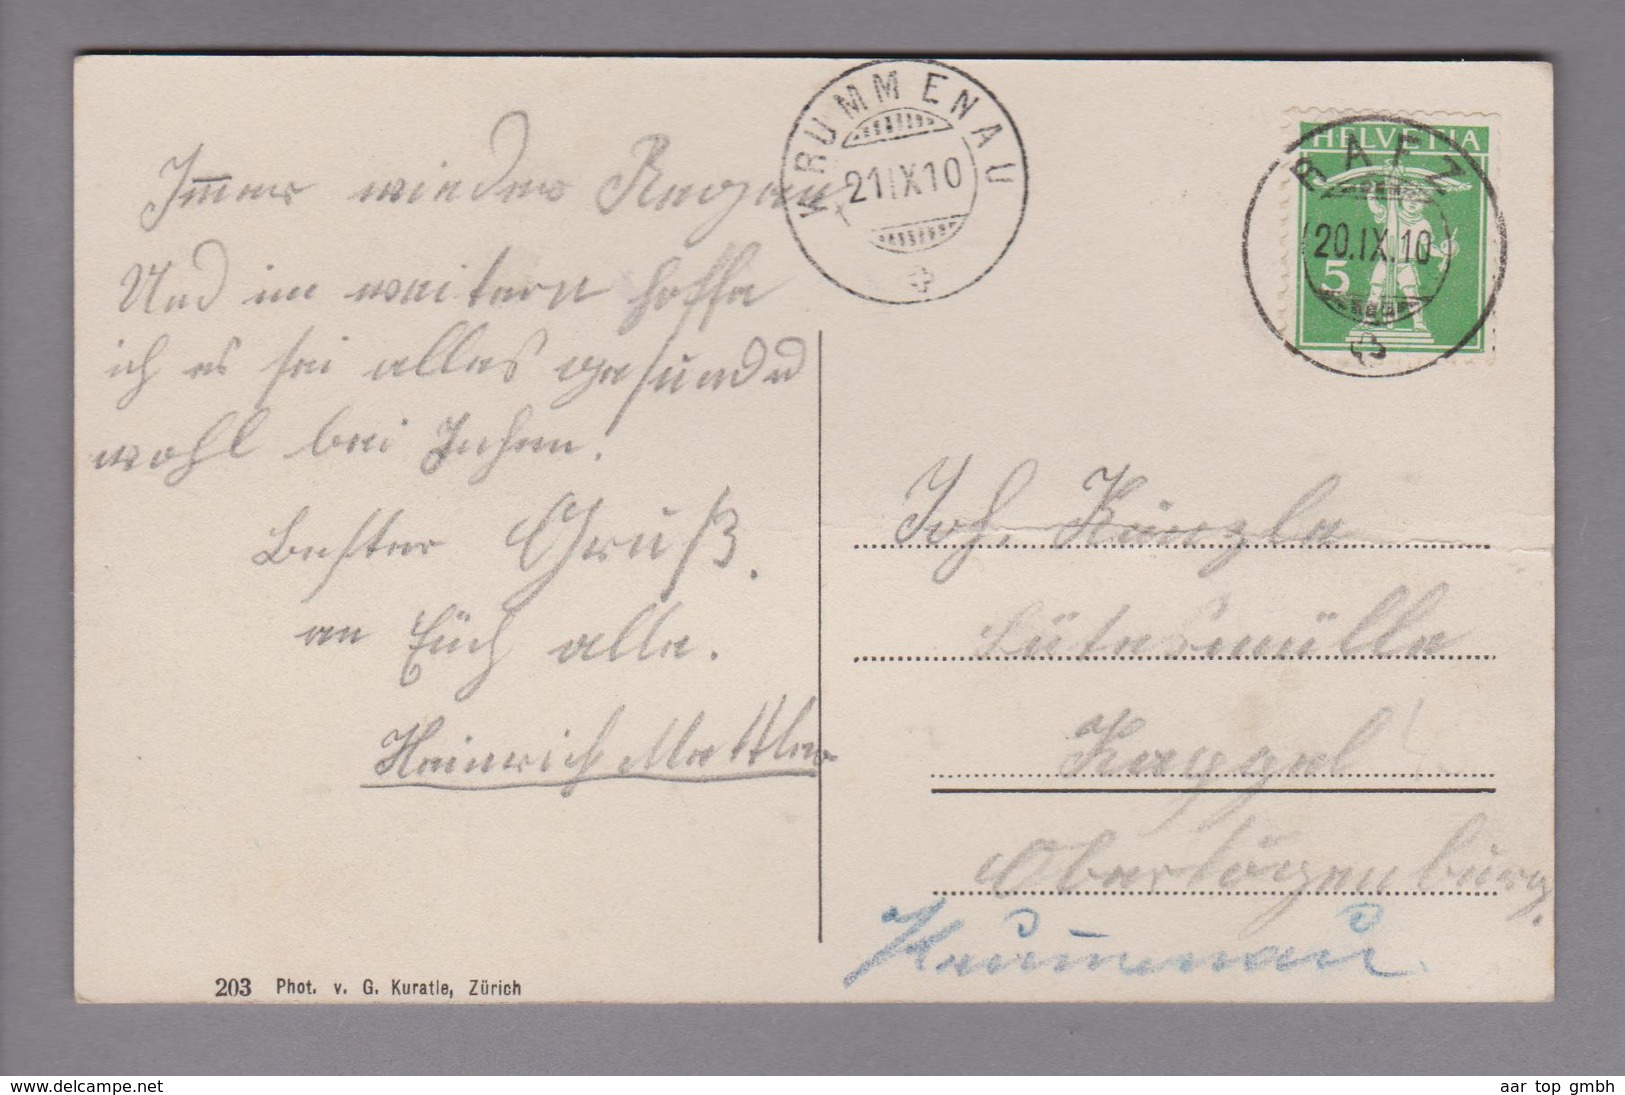 KRUMMENAU
21.IX.10
HELVETIA
5
RAFZ
20.IX.10
Immer wieder Regen
Und im weitern hoffe
ich es sei alles gesund u
wohl bei Ihnen.
Bester Gruß.
an Euch alle.
Heinrich Mettler
Joh. Künzle
Kappel
Obertogenburg.
Krummenau
203 Phot. v. G. Kuratle, Zürich
www.delcampe.net
aar top gmbh